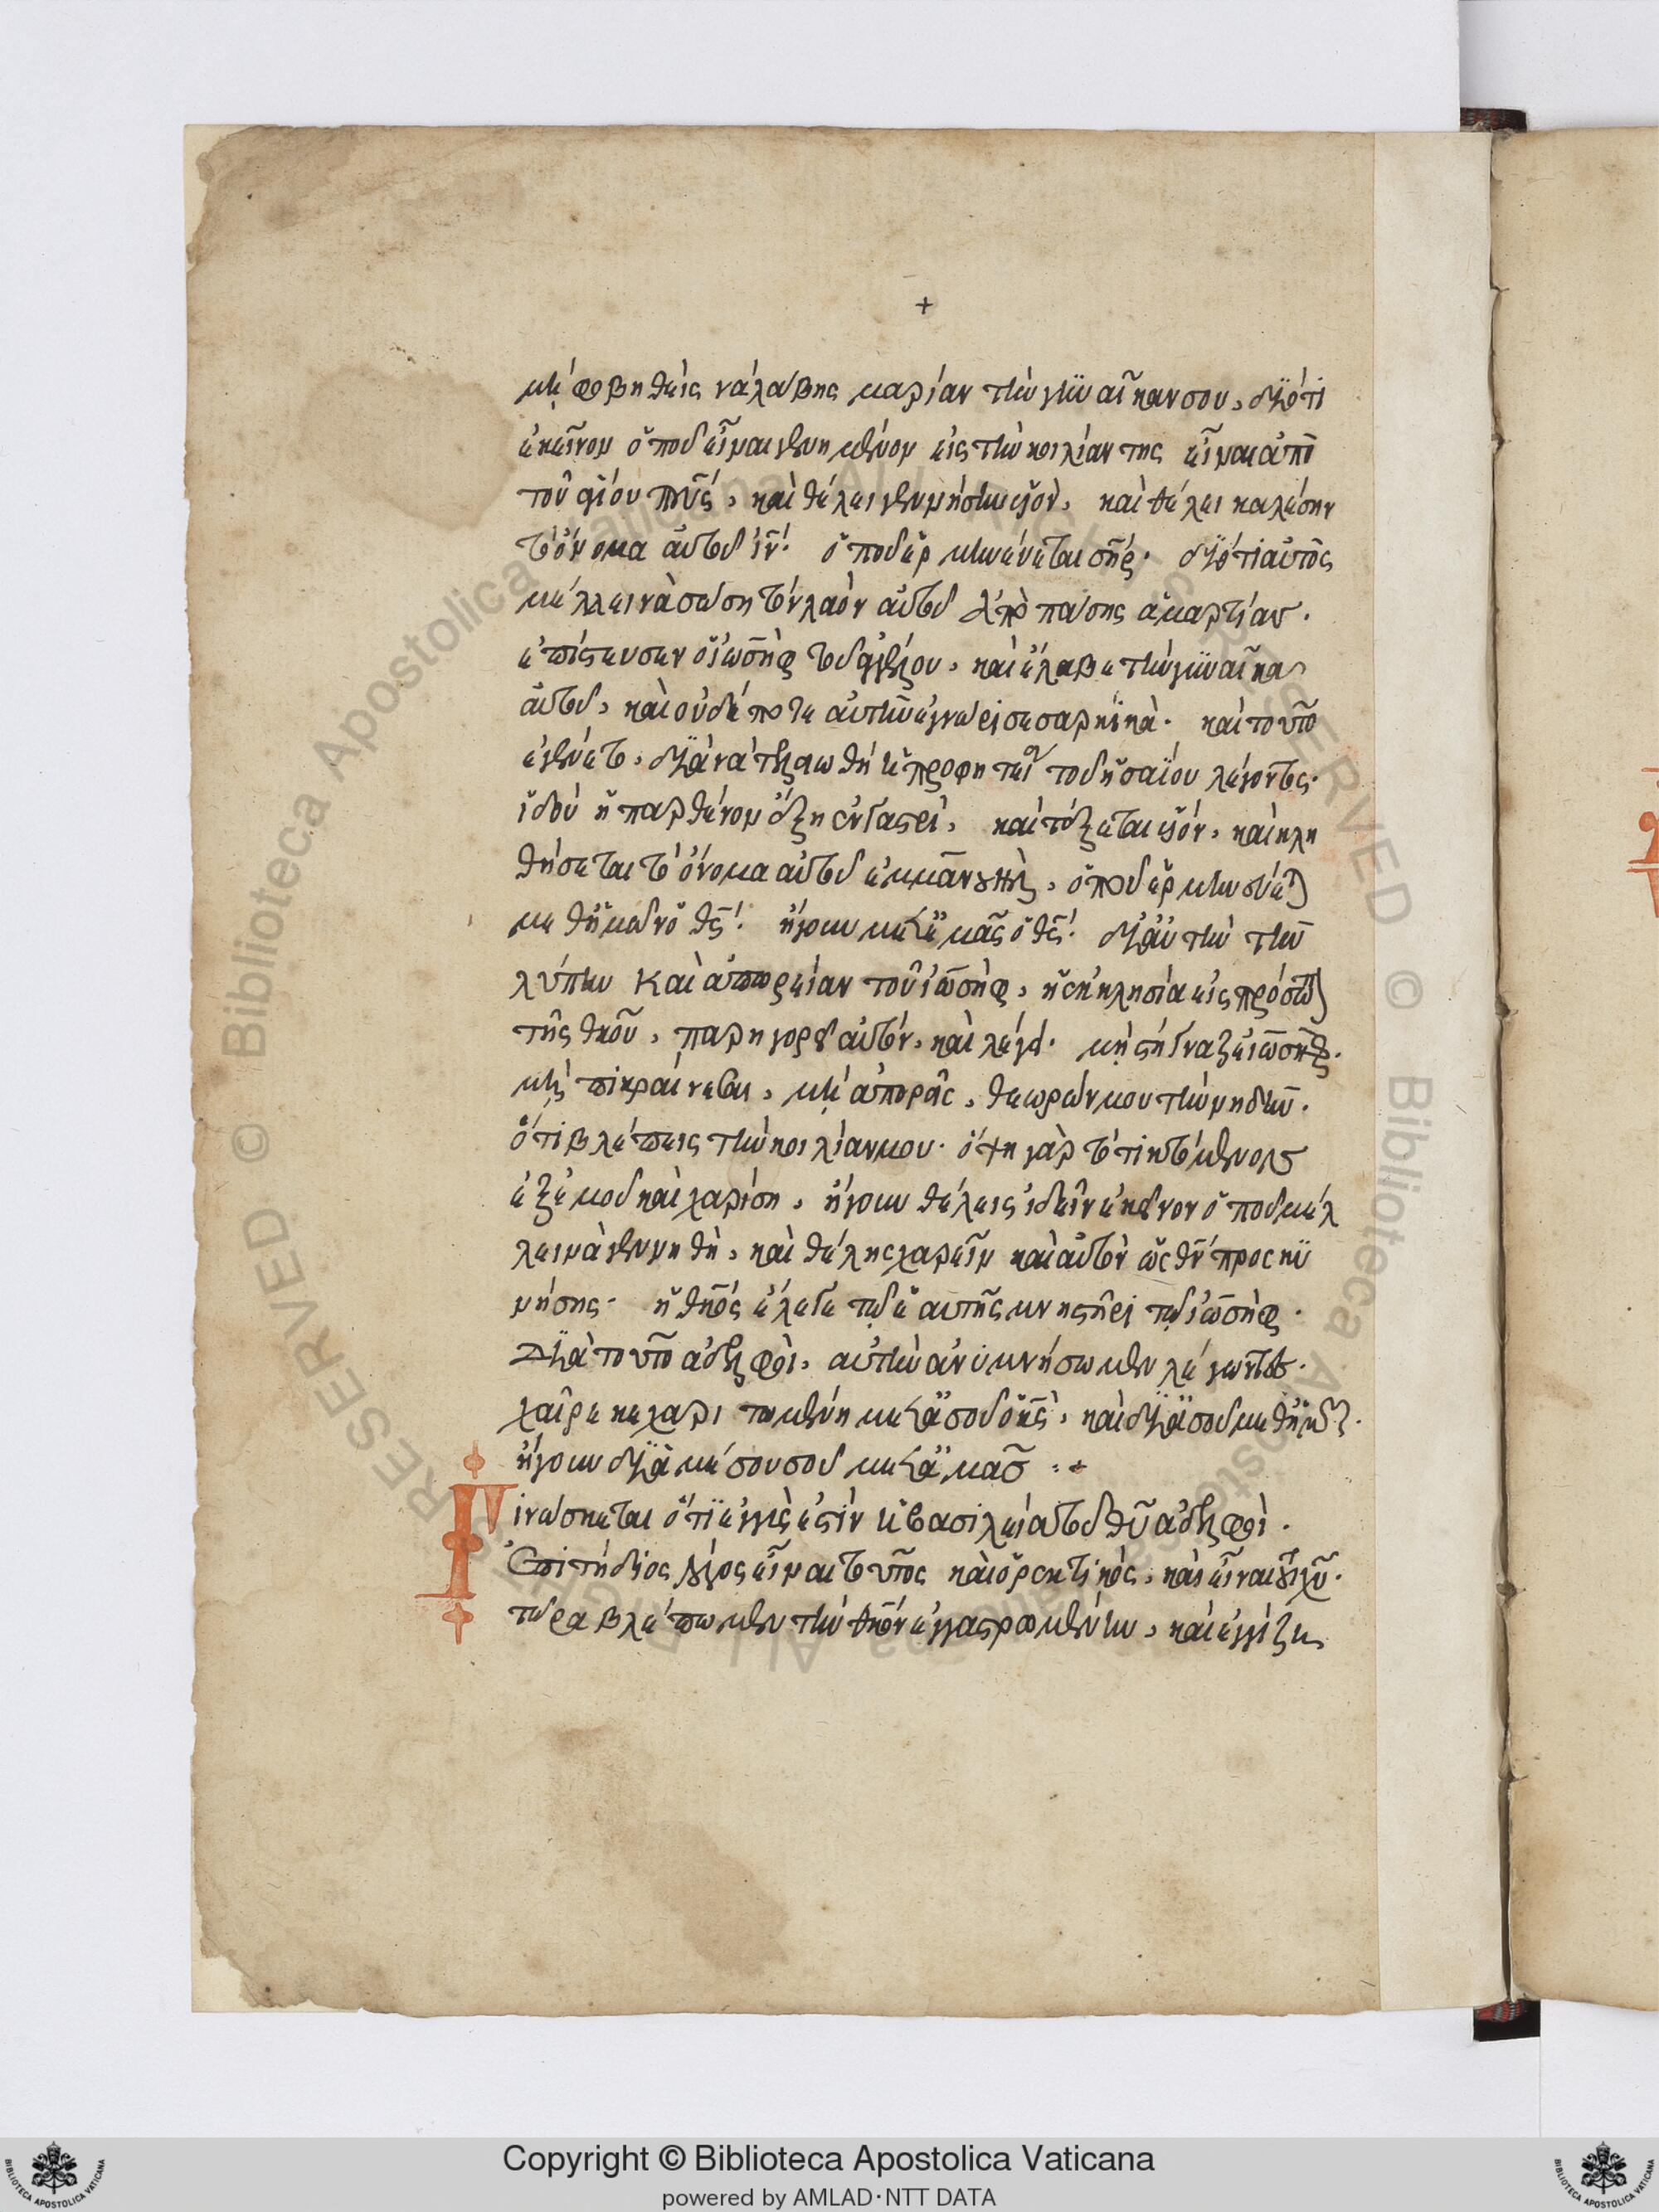 +
μὴ φοβηθεὶς νὰ λάβης μαρίαν τὴν γϋναῖκαν σου, δϊότϊ
ἐκεῖνον ὅπου εἶναι γεννημένον εἰς τὴν κοιλίαν της εἶναι ἀπὸ
τοῦ ἁγίου πνς, καὶ θέλει γεννήσην υἱὸν, καὶ θέλει καλέσην
τὸ ὄνομα αὐτοῦ ἰν· ὅπου ἑρμηνεύεται σηρ· δϊότι αὐτὸς
μέλλει νὰ σώση τὸν λαὸν αὐτοῦ ἀπὸ πάσης ἁμαρτίας.
ἐπίστευσεν ὁ ἰωσὴφ τοῦ ἀγγέλου, καὶ ἔλαβε τὴν γϋναῖκα
αὐτοῦ, καὶ οὐδέποτε αὐτὴν ἐγνώρισε σαρκϊκὰ. καὶ τοῦτο
ἐγένετο, δϊὰ νὰ τελειωθῆ ἡ προφητεία τοῦ ἡσαΐου λέγοντος·
ἰδοὺ ἡ παρθένον ἕξη ἐν γαστρὶ, καὶ τέξεται υἱόν, καὶ κλη
θήσεται τὸ ὄνομα αὐτοῦ ἐμμανουὴλ, ὅπου ἑρμηνεύεται
μεθ ἡμῶν ὁ θς· ἤγουν μετ ἐμᾶς ὁ θς· δϊ αὐτὴν τὴν
λύπην καὶ ἀπορείαν τοῦ ἰωσὴφ, ἡ ἐκκλησία εἰς πρόσωπον
τῆς θκου, παρηγορεῖ αὐτόν, καὶ λέγει· μὴ στέναζε ἰωσὴφ.
μὴ πικραίνεσαι, μὴ ἀπορᾶς, θεωρῶν μου τὴν νηδὺν.
ὅτι βλέπεις τὴν κοιλίαν μου· ὄψη γὰρ τὸ τικτόμενον
ἐξ ἐμοῦ καὶ χαρίση, ἤγουν θέλεις ἰδεῖν ἐκεῖνον ὅπου μέλ
λει νὰ γεννηθὴ, καὶ θέλης χαρεῖν καὶ αὐτὸν ὡς θν προσκϋ
νήσης· ἡ θκος ἔλεγε τῷ ἑαυτῆς μνηστῆρι τῷ ἰωσὴφ.
Δϊὰ τοῦτο ἀδελφοὶ, αὐτὴν ἀνυμνήσωμεν λέγωντες·
χαῖρε κεχαριτωμένη μετὰ σοῦ ὁ κς, καὶ δϊὰ σοῦ μεθ ἡμῶν.
ἤγουν δϊὰ μέσου σοῦ μετ ἐμᾶς :+
Γινώσκεται ὅτϊ ἐγγὺς ἐστὶν ἡ βασιλεία τοῦ θυ ἀδελφοὶ.
Ἐπιτήδϊος λόγος εἶναι τοῦτος καὶ ὀρεκτικὸς, καὶ εἶναι
τώρα βλέπωμεν τὴν θκον ἐγγαστρωμένην, καὶ ἐγγίζει